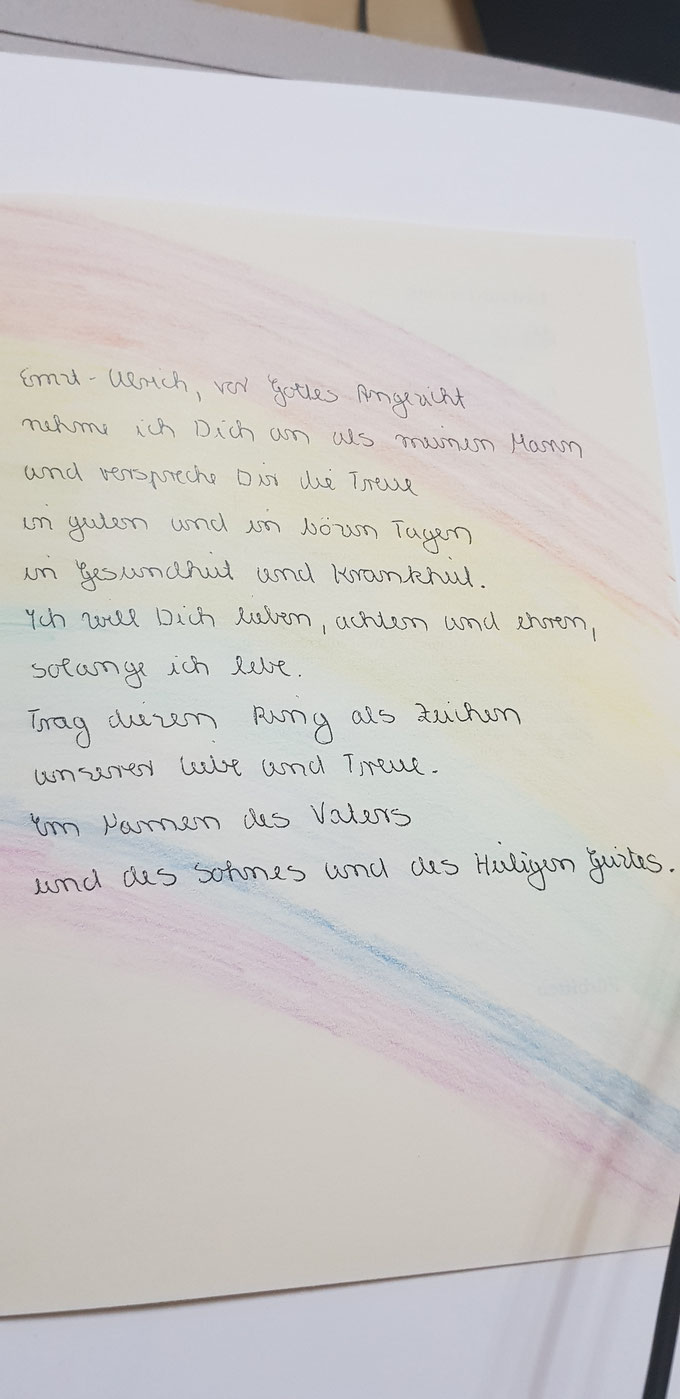 Ernst-Ulrich, vor Gottes Angesicht
nehme ich Dich an als meinen Mann
und verspreche Dir die Treue
in guten und in bösen Tagen
in Gesundheit und Krankheit.
Ich will Dich lieben, achten und ehren,
solange ich lebe.
Trag diesen Ring als Zeichen
unserer Liebe und Treue.
Im Namen des Vaters
und des Sohnes und des Heiligen Geistes.